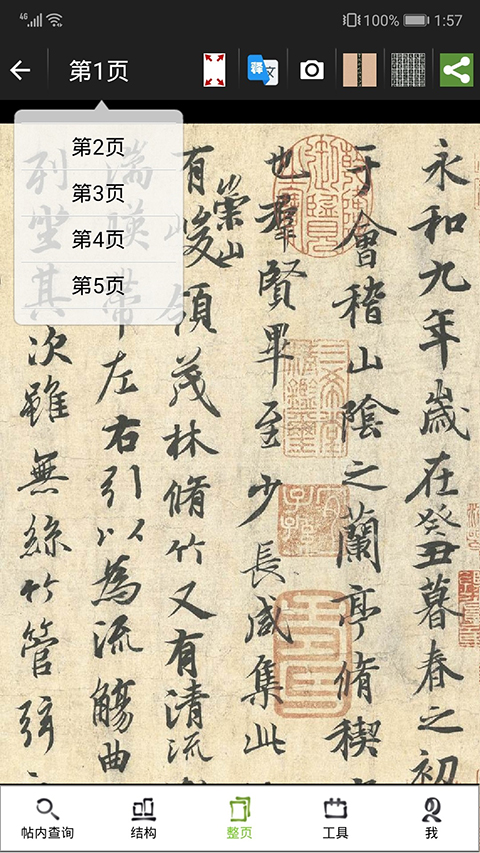 4G 100% 1:57
第1页
译 文
第2页
第3页
第4页
第5页
永和九年歲在癸丑暮春之初
于會稽山陰之蘭亭脩稧
也羣賢畢至少長咸集此
有崇山峻領茂林脩竹又有清流
湍暎帶左右引以為流觴曲
列坐其次雖無絲竹管弦
三希堂精鑑璽
宜子孫
帖内查询
结构
整页
工具
我